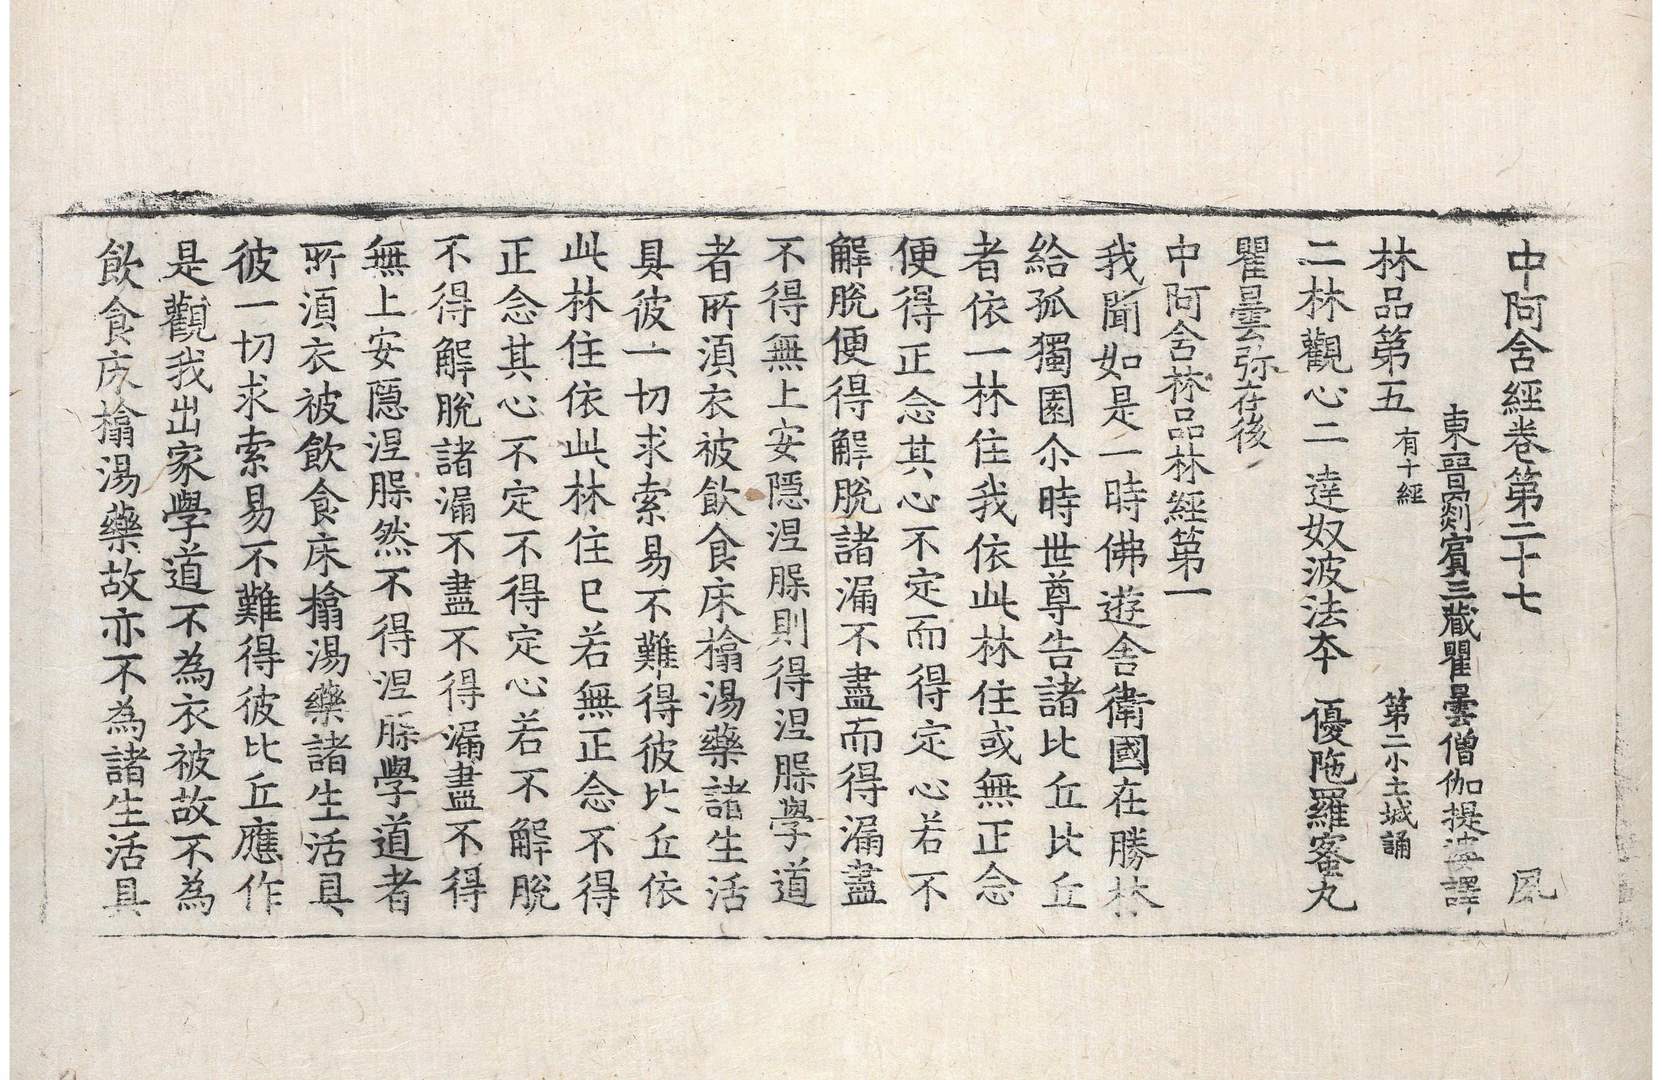 中阿含經卷第二十七 風
東晉罽賓三藏瞿曇僧伽提婆譯
林品第五 有十經 第二小土城誦
二林觀心二 達奴波法本 優陁羅蜜丸
瞿曇弥在後
中阿含林品林經第一
我聞如是一時佛遊舍衛國在勝林
給孤獨園尒時世尊告諸比丘比丘
者依一林住我依此林住或無正念
便得正念其心不定而得定心若不
解脫便得解脫諸漏不盡而得漏盡
不得無上安隱涅槃則得涅槃學道
者所須衣被飲食床榻湯藥諸生活
具彼一切求索易不難得彼比丘依
此林住依此林住已若無正念不得
正念其心不定不得定心若不解脫
不得解脫諸漏不盡不得漏盡不得
無上安隱涅槃然不得涅槃學道者
所須衣被飲食床榻湯藥諸生活具
彼一切求索易不難得彼比丘應作
是觀我出家學道不為衣被故不為
飲食床榻湯藥故亦不為諸生活具